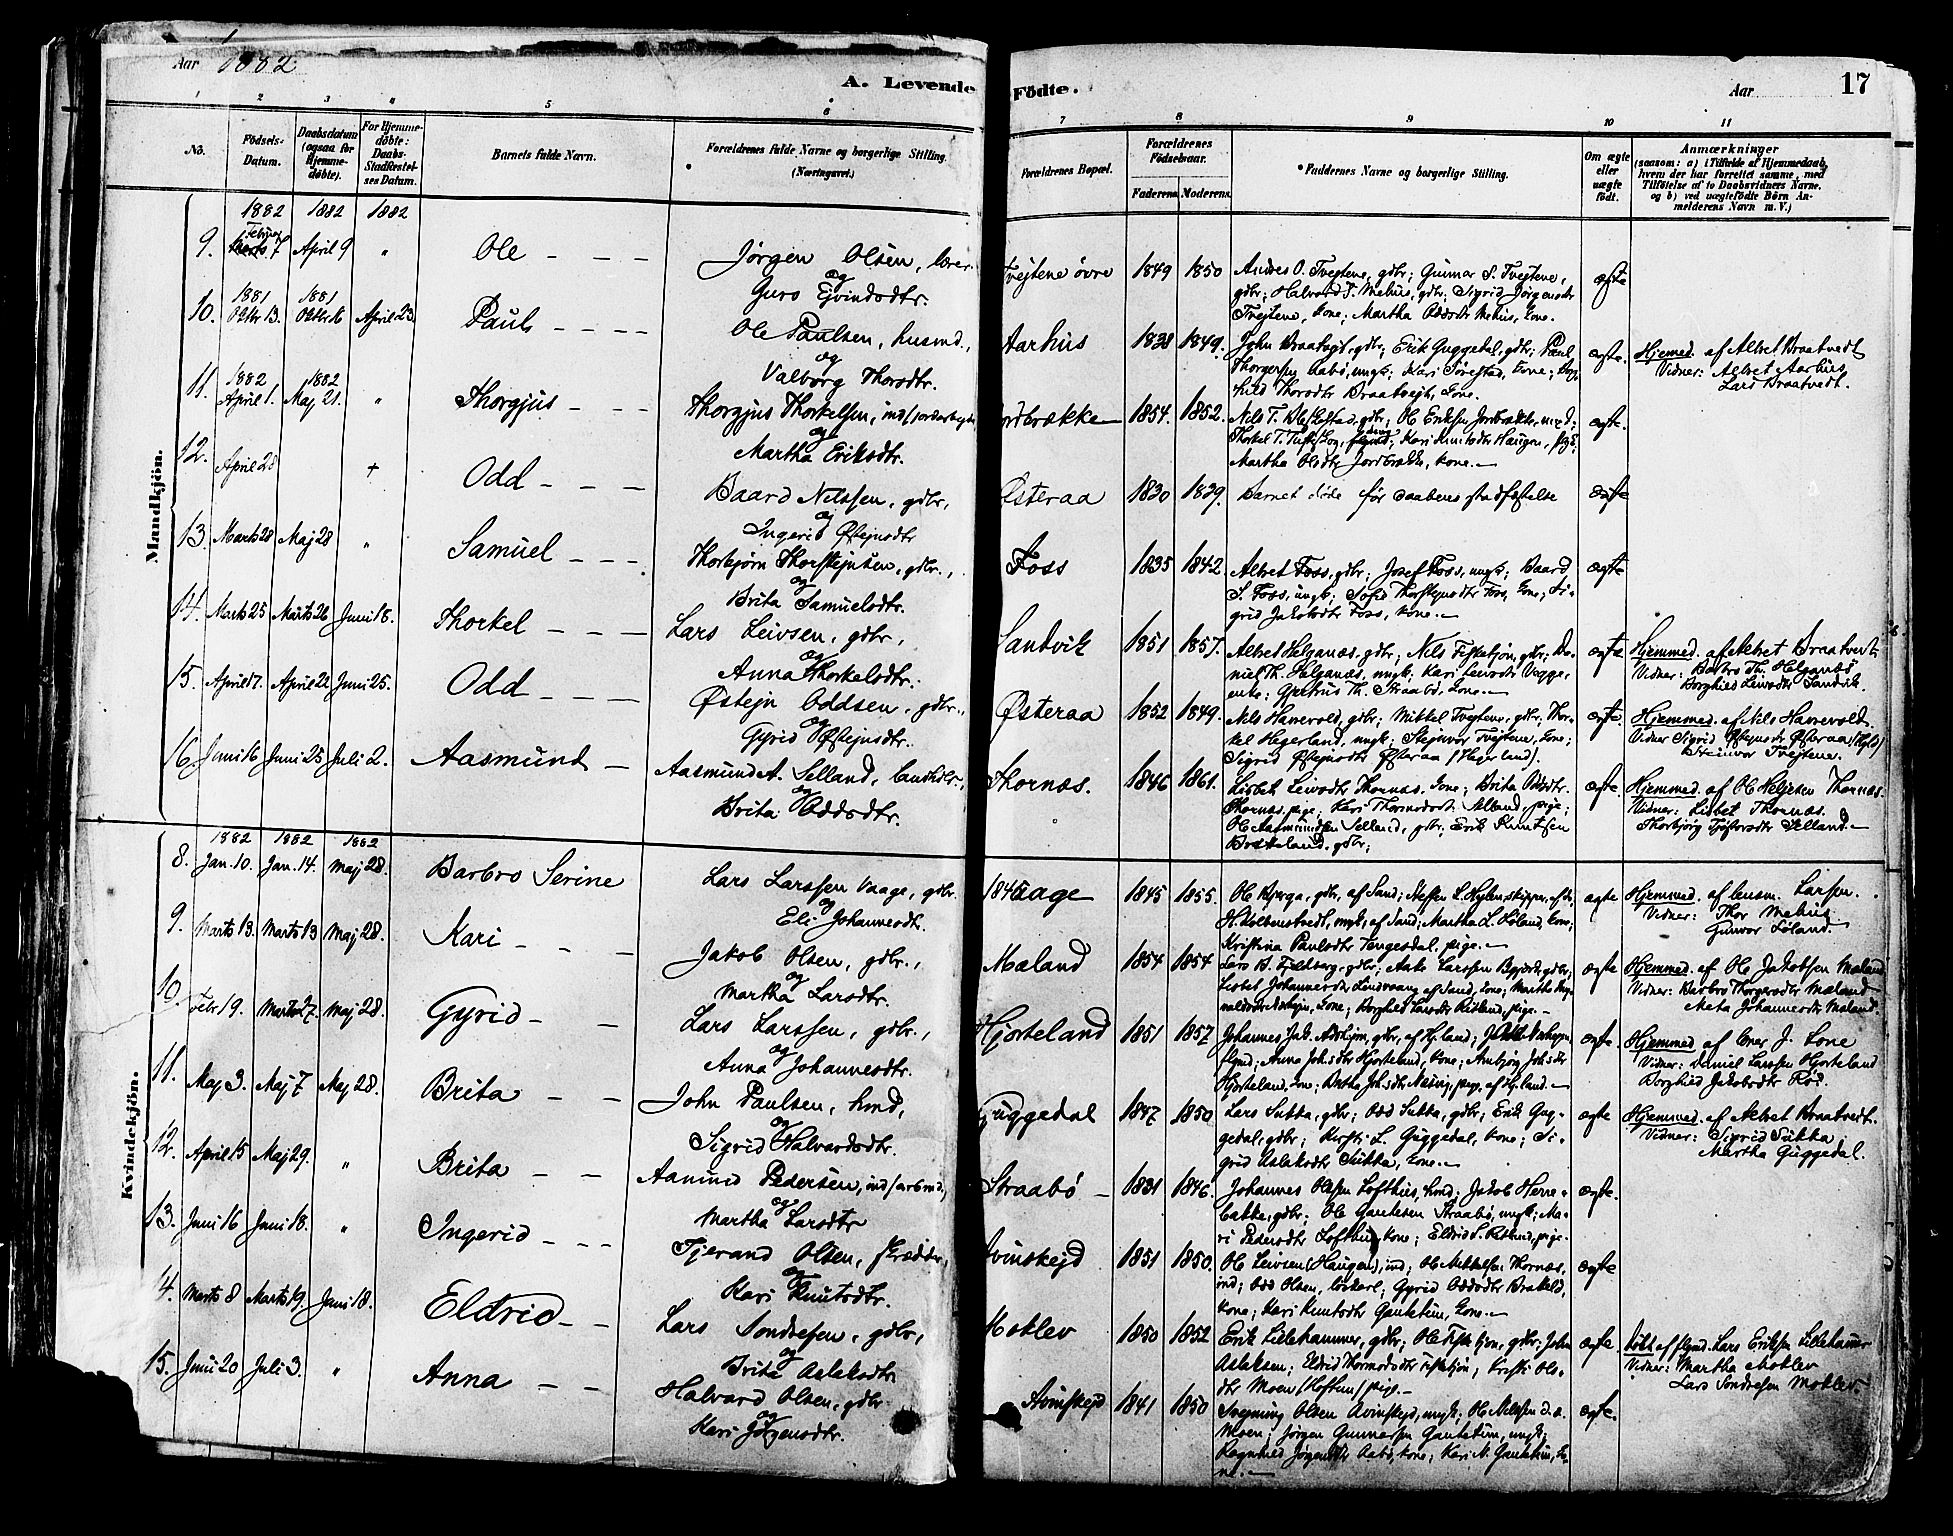 Aar 1882
A. Levende Födte.
Aar 17
1 2 3 4 5 6 7 8 9 10 11
No.
Födsels-Datum.
Daabsdatum (ogsaa for Hjemme-döbte).
For Hjemme-döbte: Daabs-Stadfæstel-ses Datum.
Barnets fulde Navn.
Forældrenes fulde Navne og borgerlige Stilling. (Næringsvei.)
Forældrenes Bopæl.
Forældrenes Födselsaar.
Faderens. Moderens.
Faddernes Navne og borgerlige Stilling.
Om ægte eller uægte födt.
Anmærkninger
(saasom: a) i Tilfælde af Hjemmedaab,
hvem der har forrettet samme, med
Tilföielse af to Daabsvidners Navne.
og b) ved uægtefödte Börn An-
melderens Navn m. V.)
Mandkjön.
1882 1882 1882
9. Februar 7 April 9 " Ole Jørgen Olsen, lærer og Guro Ejvindsdtr. Tvejtene øvre 1849 1850
Anders O. Tvejtene, gdbr; Gunnar S. Tvejtene,
gdbr; Halvard T. Mehus, gdbr; Sigrid Jørgensdtr
Tvejtene, kone; Martha Oddsdtr Mehus, kone.
ægte
1881 1881
10. Oktbr 13. Oktbr 16 April 23. Paul Ole Paulsen, husmd., og Valborg Thorsdtr. Aarhus 1828 1849.
John Braatvejt, gdbr; Erik Guggedal, gdbr; Paul
Thorgersen Aabø, ungk; Kari Tvestad, kone;
hild Thorsdtr Braatvejt, kone.
ægte.
Hjemmed. af Alvret Braatvedt
Vidner: Alvret Aarhus
Lars Braatvedt.
1882 1882
11. April 1. Maj 21. " Thorgjus Thorgjus Thorkelsen, ind/jordarbejder og Martha Eriksdtr. Jordbrække 1854. 1852.
Ole Eriksen Jordbrække,
Kari Knutsdtr Haugen, pige;
Martha Olsdtr Jordbrække, kone.
ægte.
12. April 28 + Odd Baard Nilssen, gdbr, og Ingerid Østejnsdtr Østeraa 1830 1839.
Barnet døde før daabens stadfæstelse
ægte
13. Marts 28 Maj 28 " Samuel Thorbjørn Thorstejnsen, gdbr., og Brita Samuelsdtr. Foss 1835 1842.
Alvret Foss, gdbr; Josef Foss, ungk; Baard
S. Foss, ungk; Sofie Thorstejnsdtr Foss, kone; Si-
grid Jakobsdtr Foss, kone.
ægte
14. Marts 25 Marts 26 Juni 18. Thorkel Lars Leivsen, gdbr, og Anna Thorkelsdtr. Sandvik 1851 1857.
Alvret Helganæs, gdbr; Nils Fisketjøn, gdbr; Da-
niel Th. Helganæs, ungk; Kari Leivsdtr Vegge,
enke; Gjertrus Th. Straabø, kone.
ægte
Hjemmed. af Alvret Braatvedt
Vidner: Barbro Th. Helganæs
Borghild Leivsdtr Sandvik.
15. April 17. April 22 Juni 25. Odd Østejn Oddsen, gdbr., og Gyrid Østejnsdtr. Østeraa 1852 1849.
Nils Harrevold, gdbr; Mikkel Tvejtene, gdbr; Thor-
kel Hegerland, ungk; Stejnvor Tvejtene, kone;
Sigrid Østejnsdtr Østeraa (Hegerland).
ægte.
Hjemmed. af Nils Harrevold.
Vidner Sigrid Østejnsdtr Østeraa
Stejnvor Tvejtene.
16 Juni 16 Juni 25 Juli 2. Aasmund Aasmund A. Selland, landhdlr., og Brita Oddsdtr. Thornæs. 1846 1861.
Lisbet Leivsdtr Thornæs, kone; Brita Oddsdtr.
Thornæs, pige; Kari Thormodsdtr Selland, pige;
Ole Aasmundsen Selland, gdbr; Erik Knutsen
Brakeland, gdbr;
ægte.
Hjemmed. af Ole Helgesen Thornæs.
Vidner: Lisbet Thornæs.
Thorbjørg Selland.
Kvindekjön.
1882 1882 1882
8. Jan. 10. Jan. 14. Maj 28. Barbro Serine Lars Larssen Vaage, gdbr. og Eli Johannesdtr. Vaage 1845 1855.
Ole Bjerga, gdbr, af Sand; Steffen L. Hylen, skipper,
Martha L. Løland, kone;
Kristina Paulsdtr Tengesdal, pige.
ægte
Hjemmed. af lensm. Larsen.
Vidner: Thor Mehus
Gunvor Løland.
9. Marts 13. Marts 13 Maj 28. Kari Jakob Olsen, gdbr., og Martha Larsdtr. Mæland 1854 1854
Lars B. Fjeldberg, gdbr;
Lisbet Johannesdtr Lindvaang af Sand, kone;
kone; Borghild Larsdtr Østland, pige.
ægte
Hjemmed. af Ole Jakobsen Mæland
Vidner: Barbro Thorgersdtr Mæland
Meta Johannesdtr Mæland.
10. Febr 19. Marts 27. Maj 28. Gyrid Lars Larssen, gdbr., og Anna Johannesdtr. Hjorteland 1851 1857
Johannes Jak.
Anna Johsdtr Hjorteland, kone; Anbjørg Johsdtr
Hjorteland, kone;
ægte.
Hjemmed af lærer J. Lone
Vidner: Daniel Larssen Hjorteland
Borghild Jakobsdtr Rød.
11. Maj 3. Maj 7 Maj 28. Brita John Paulsen, hmd, og Sigrid Halvardsdtr. Guggedal 1847 1850
Lars Sukka, gdbr; Odd Sukka, gdbr; Erik Gug-
gedal, gdbr; Kirsti L. Guggedal, kone; Si-
grid Aslaksdtr Sukka, kone.
ægte
Hjemmed. af Alvret Braatvedt.
Vidner: Sigrid Sukka
Martha Guggedal.
12. April 15 Maj 29. " Brita Aamund Pedersen, ind/arbmd, og Martha Larsdtr Straabø 1831 1846.
Johannes Olssen Lofthus, hmd; Jakob Herre-
bakke, gdbr; Ole Gautesen Straabø, ungk; Ma-
ri Pedersdtr Lofthus, kone; Eldrid S. Østland, pige.
ægte.
13. Juni 16 Juni 18. " Ingerid Tjerand Olsen, skrædder, og Kari Knutsdtr. Avinskejd 1851 1850.
Ole Leivsen (Haugen), ind; Ole Mikkelsen Thornæs,
ind; Odd Olsen, løskarl; Gyrid Oddsdtr Brakeld,
kone; Kari Knutsdtr Gautetun, kone.
ægte
4. Marts 8 Marts 19. Juni 18. Eldrid Lars Sondresen, gdbr, og Brita Aslaksdtr Moklev 1850 1852
Erik Lillehammer, gdbr; Ole Fisketjøn, gdbr; John
Aslaksen; Eldrid Thormodsdtr Fisketjøn, Kirsti Ols-
dtr Moen (Hoftun) pige.
ægte.
Døbt af Lars Eriksen Lillehammer
Vidner: Martha Moklev
Lars Sondresen Moklev.
15. Juni 20 Juli 3. " Anna Halvard Olsen, gdbr. og Kari Jørgensdtr. Avinskejd 1841 1850
Svejnung Olsen Avinskejd, ungk; Ole Nilssen
Moen; Jørgen Gunnarsen Gautetun, ungk;
Ragnhild Jørgensdtr Aabø, kone; Kari N. Gautetun, ko-
ne.
ægte.